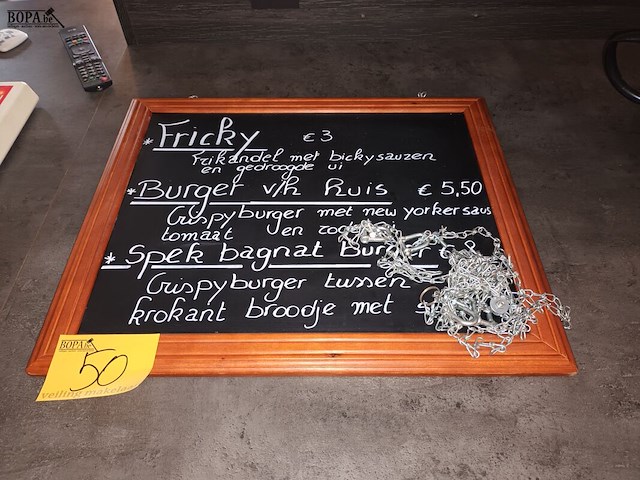 BOPA.be
* Fricky € 3
Frikandel met bickysauzen
en gedroogde ui
* Burger v/h huis € 5,50
Crispy burger met new yorkersaus
tomaat en rode
* Spek bagnat Burger €
Crispy burger tussen
krokant broodje met
BOPA.be
50
veiling makelaar